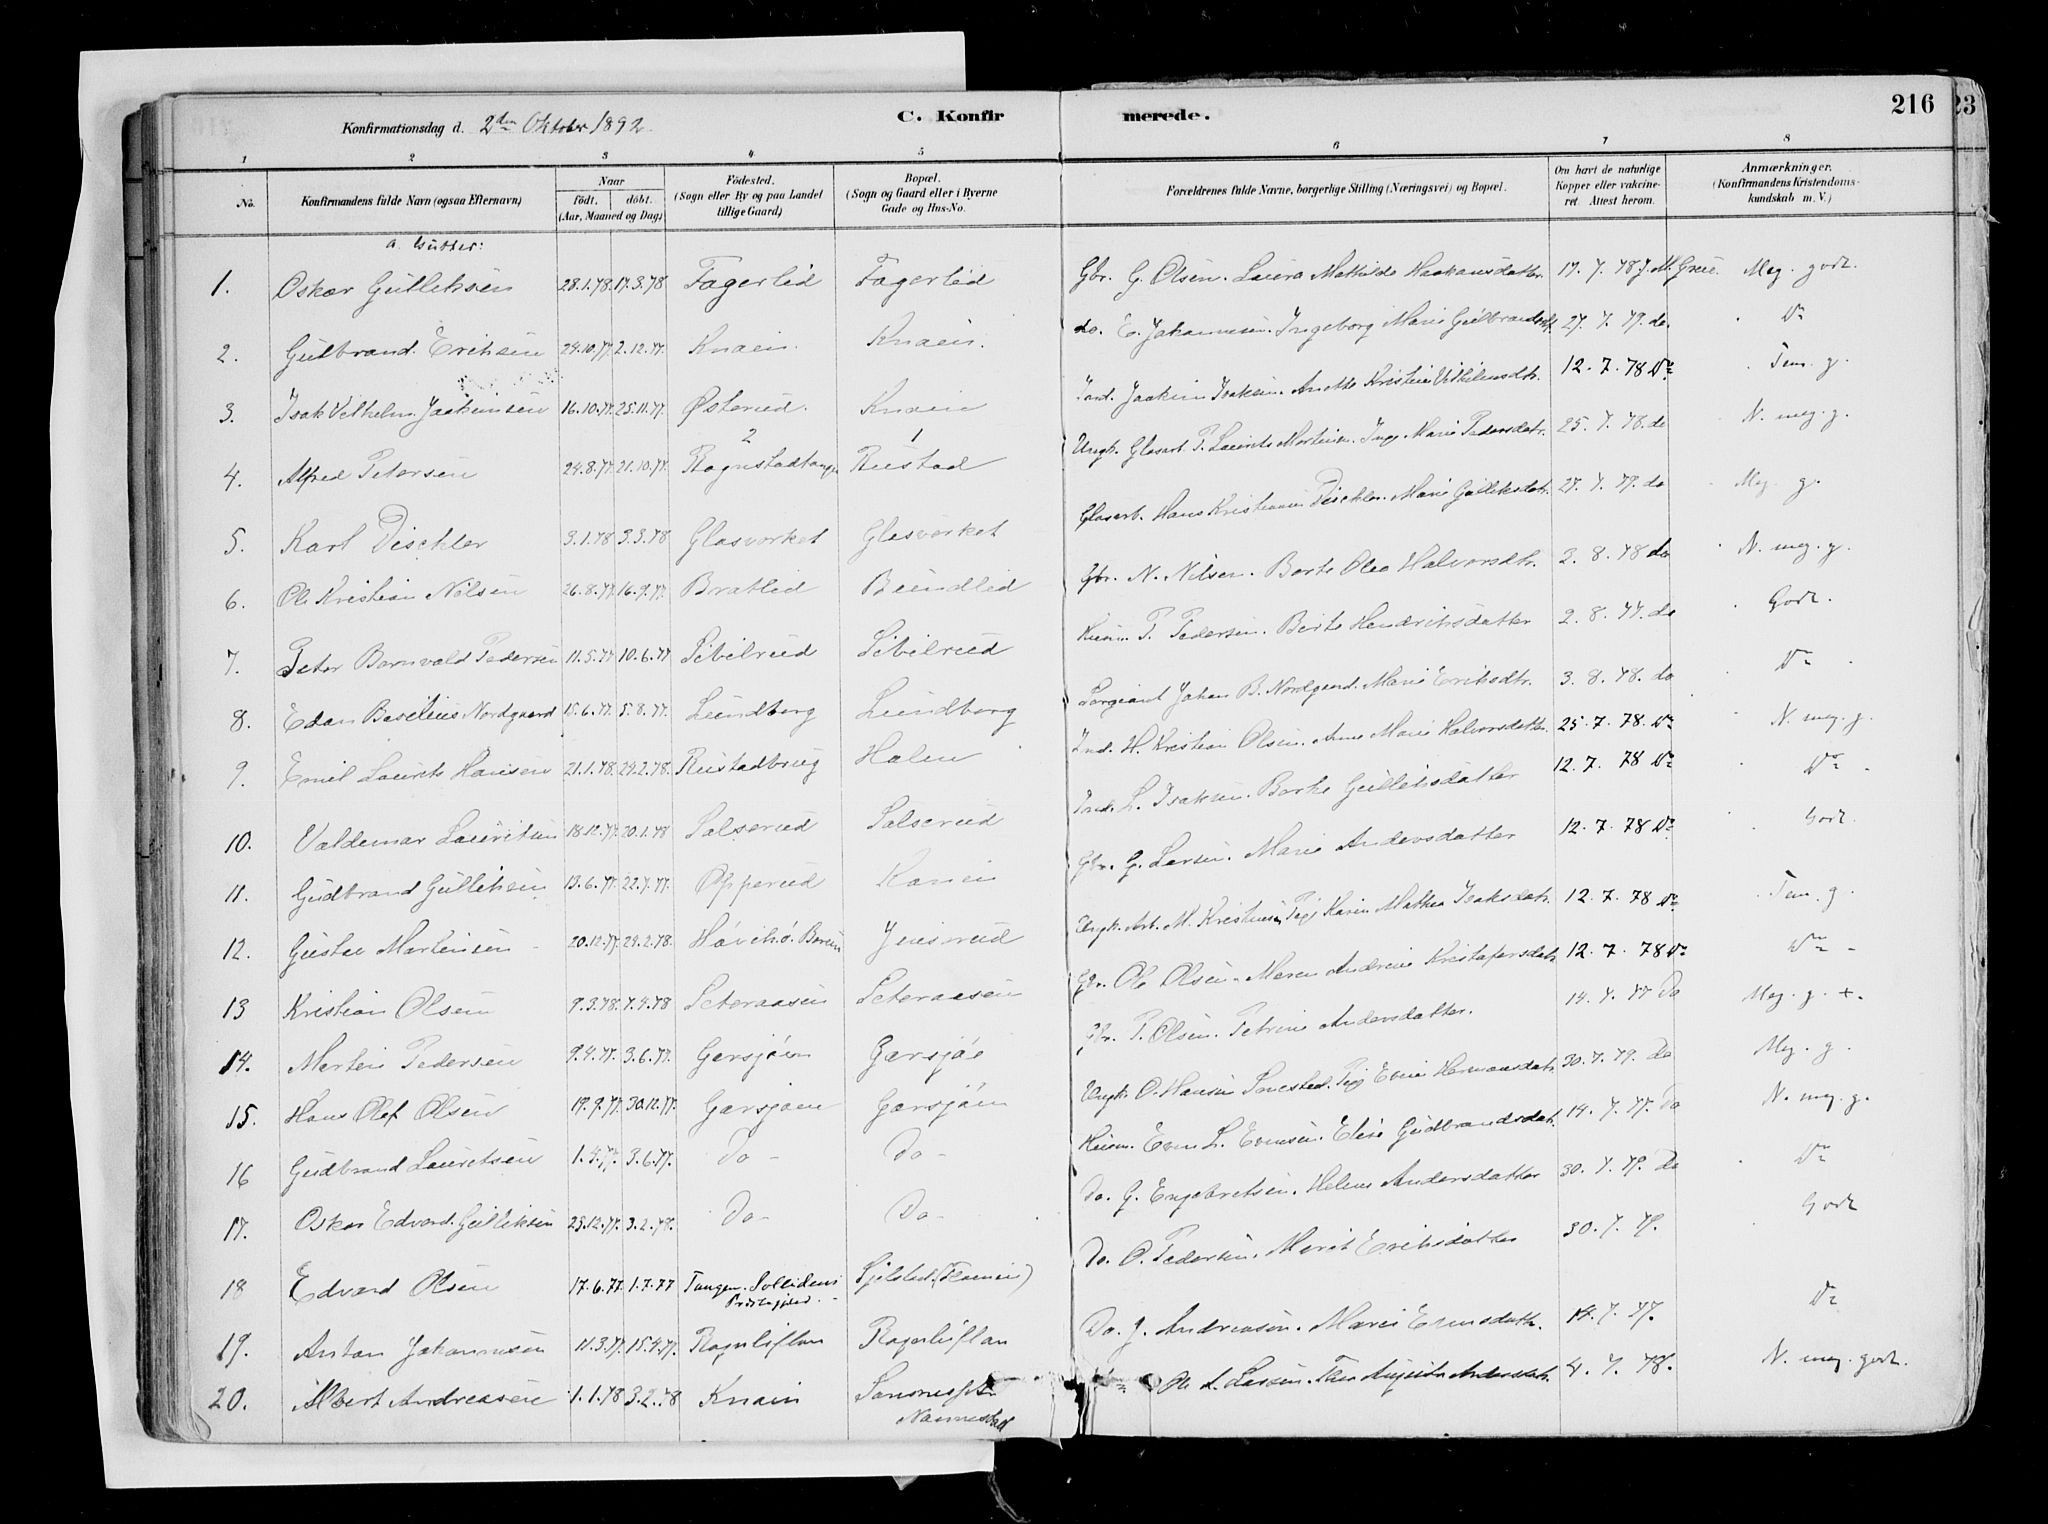 216
23
Konfirmationsdag d. 2den Oktober 1892.
C. Konfirmerede.
1 2 3 4 5 6 7 8
No. Konfirmandens fulde Navn (ogsaa Efternavn) Naar födt. döbt. (Aar, Maaned og Dag) Födested. (Sogn eller By og paa Landet tillige Gaard) Bopæl. (Sogn og Gaard eller i Byerne Gade og Hus-No. Forældrenes fulde Navne, borgerlige Stilling (Næringsvei) og Bopæl. Om havt de naturlige Kopper eller vakcineret. Attest herom. Anmærkninger. (Konfirmandens Kristendomskundskab m. V.)
a. Gutter:
1. Oskar Gulliksen 28.1.78. 17.3.78 Fagerlid Fagerlid Gbr. G. Olsen. Laura Mathilde Haakansdatter 17.7.78 J. M. Meg. godt.
2. Gulbrand Eriksen 24.10.77. 2.12.77. Knaein. Knaein. do. E. Johannesen. Ingeborg Marie Gulbrandsdtr. 27.7.79. do. Do
3. Isak Vilhelm Joakimsen 16.10.77. 25.11.77. Østerud. Knaein Ind. Joakim Isaksen. Anette Kristine Vilhelmsdtr. 12.7.78 Do Tem. g.
2 1
4. Alfred Petersen 24.8.77. 21.10.77. Rognstadtangen Rustad Ungk. Glasarb. P. Laurits Martinsen. Marie Pedersdatr. 25.7.78. do N. meg. g.
5. Karl Dischler 3.1.78 3.3.78 Glasverket Glasverket Glasarb. Hans Kristiansen Dischler. Marie Gulliksdatr. 27.7.79. do Meg. g.
6. Ole Kristian Nilsen 26.8.77. 16.9.77. Bratlid Bundlid Gbr. N. Nilsen. Berte Olea Halvorsdtr. 2.8.78 do N. meg. g.
7. Peter Bernvald Pedersen 11.5.77 10.6.77 Sibilrud Sibilrud Husm. P. Pedersen. Berte Hendriksdatter 2.8.77. do Godt.
8. Edan Basilius Nordgaard 15.6.77. 5.8.77. Lundborg Lundborg Sergeant Johan B. Nordgaard. Marie Eriksdtr. 3.8.78. do Do
9. Emil Laurits Hansen 21.1.78. 24.2.78. Rustadbrug Holen Ind. H. Kristian Olsen. Anne Marie Halvorsdatter. 25.7.78. Do N. meg. g.
10. Valdemar Lauritsen 18.12.77. 20.1.78 Salserud Salserud Ind. L. Isaksen. Berte Gulliksdatter 12.7.78 Do Do
11. Gudbrand Gulliksen 13.6.77. 22.7.77. Opperud Kanein Gbr. G. Larsen. Marie Andersdatter 12.7.78 Do Godt.
12. Gustav Martinsen 20.12.77. 24.2.78. Høvikø. Bærum Jensrud Ungk. Arb. M. Kristensen, Pige Karin Mathea Isaksdatr. 12.7.78 Do Tem. g.
13 Kristian Olsen 9.3.78. 7.4.78 Seteraasen Seteraasen Gbr. Ole Olsen. Maren Andrene Kristofersdatr. 12.7.78 Do Do
14. Martin Pedersen 9.4.77. 3.6.77. Garsjøen Garsjøe Gbr. P. Olsen. Petrine Andersdatter. 14.7.77 Do Meg. g. +.
15. Hans Olaf Olsen 19.9.77. 30.12.77. Garsjøen Garsjøen Ungk. O. Hansen Pige Evine Hermansdatr. 30.7.79. Do Meg. g.
16 Gudbrand Lauretsen 1.4.77. 3.6.77. Do Do Husm. Even L. Evensen. Elise Gudbrandsdatr. 14.7.77. Do N. meg. g.
17. Oskar Edvard Gulliksen 23.12.77. 3.2.78. Do Do Do. G. Engebretsen. Helene Andersdatter 30.7.79. Do Do
18 Edvard Olsen 17.6.77. 1.7.77 Tangen. Sollidens Præstegjeld. Do. O. Pedersen. Marit Eriksdatter 30.7.79. Godt
19. Anton Johannesen 11.3.77. 15.4.77. Rognliflan Rognliflan Do. J. Andreassen. Marie Evensdatter. 14.7.77. Do
20. Albert Andreasen 1.1.78 3.2.78 Knaein Nannestad Ole A. Larsen. Andersdatr. 4.7.78. N. meg. godt.